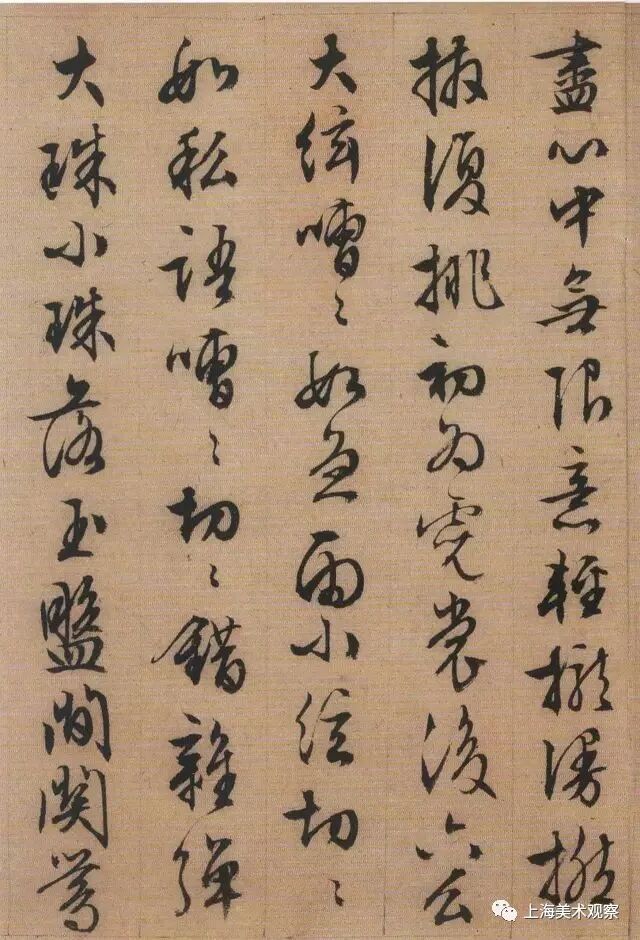 盡心中無限意輕攏慢撚
抹復挑初為霓裳後六么
大絃嘈〻如急雨小絃切〻
如私語嘈〻切〻錯雜彈
大珠小珠落玉盤間關鶯
上海美术观察